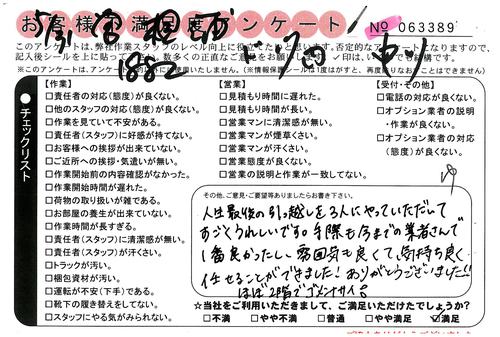 お客様満足度アンケート
No 063389
このアンケートは、弊社作業スタッフのレベル向上に役立て
1882
チェックリスト
【作業】
□責任者の対応(態度)が良くない。
□他のスタッフの対応(態度)が良くない。
□作業を見ていて不安がある。
□責任者(スタッフ)に好感が持てない。
□お客様への挨拶が出来ていない。
□ご近所への挨拶・気遣いが無い。
□作業開始前の内容確認がなかった。
□作業開始時間が遅れた。
□荷物の取り扱いが雑である。
□お部屋の養生が出来ていない。
□作業時間が長すぎる。
□責任者(スタッフ)に清潔感が無い。
□責任者(スタッフ)が汗くさい。
□トラックが汚い。
□梱包資材が汚い。
□運転が不安(下手)である。
□靴下の履き替えをしてない。
□スタッフにやる気がみられない。
【営業】
□見積もり時間に遅れた。
□見積もり時間が長い。
□営業マンに清潔感が無い。
□営業マンが煙草くさい。
□営業マンが汗くさい。
□営業態度が良くない。
□営業の説明と作業が一致してない。
【受付・その他】
□電話の対応が良くない。
□オプション業者の説明・作業が良くない。
□オプション業者の対応(態度)が良くない。
その他、ご意見・ご要望等ありましたらお書き下さい。
人生最後の引っ越しを3人にやっていただいて
すごくうれしいです。手際も今までの業者さんで
1番良かったし、雰囲気も良くて、気持ち良く
任せることができました!ありがとうございました!!
ほぼ2階でゴメンナサイ
☆当社をご利用いただきまして、ご満足いただけたでしょうか?
□不満 □やや不満 □普通 □やや満足 ☑満足